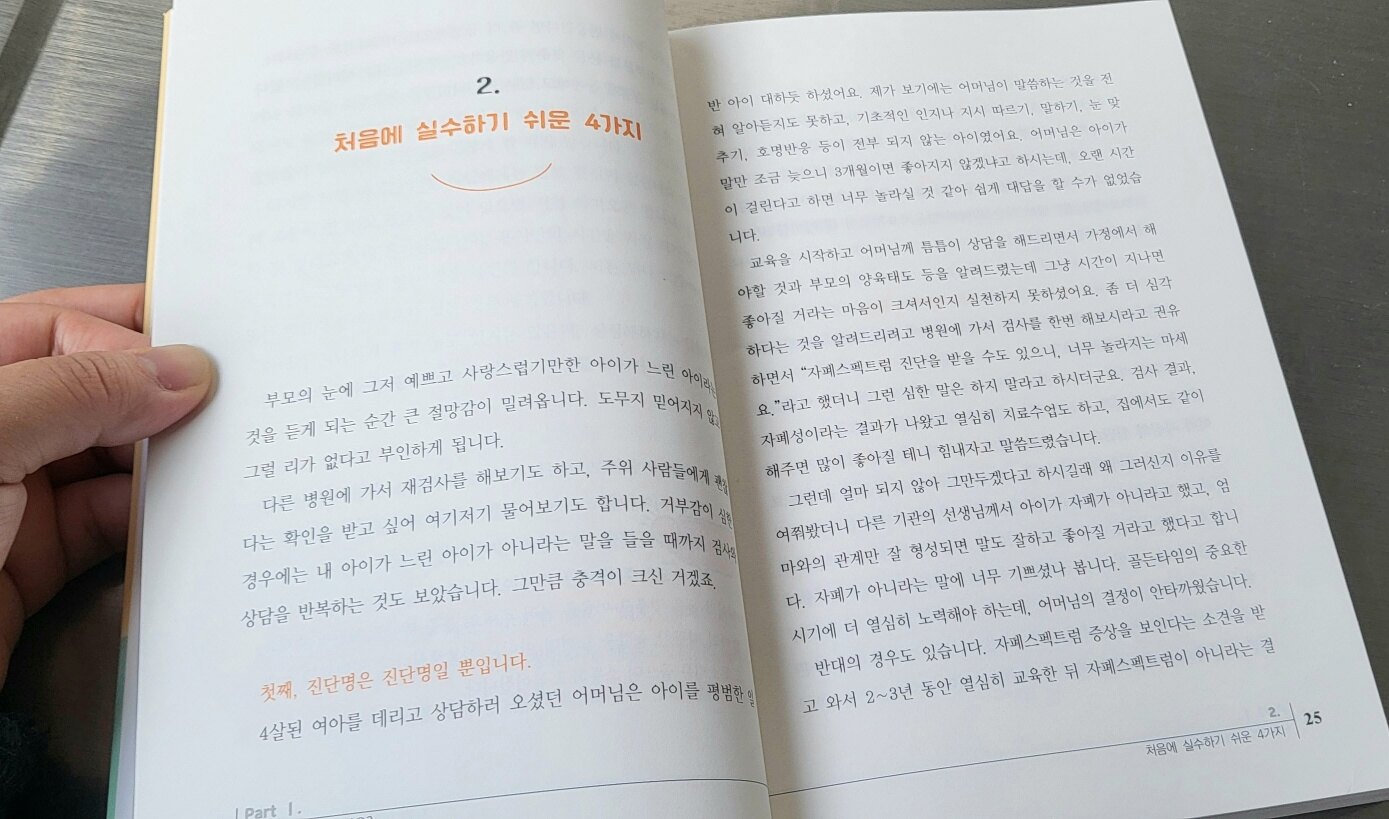 2.
처음에 실수하기 쉬운 4가지
부모의 눈에 그저 예쁘고 사랑스럽기만한 아이가 느린 아이라는
것을 듣게 되는 순간 큰 절망감이 밀려옵니다. 도무지 믿어지지 않고
그럴 리가 없다고 부인하게 됩니다.
다른 병원에 가서 재검사를 해보기도 하고, 주위 사람들에게
다는 확인을 받고 싶어 여기저기 물어보기도 합니다. 거부감이 심한
경우에는 내 아이가 느린 아이가 아니라는 말을 들을 때까지 검사와
상담을 반복하는 것도 보았습니다. 그만큼 충격이 크신 거겠죠.
첫째, 진단명은 진단명일 뿐입니다.
4살된 여아를 데리고 상담하러 오셨던 어머님은 아이를 평범한 일
Part 1.
반 아이 대하듯 하셨어요. 제가 보기에는 어머님이 말씀하는 것을 전
혀 알아듣지도 못하고, 기초적인 인지나 지시 따르기, 말하기, 눈 맞
추기, 호명반응 등이 전부 되지 않는 아이였어요. 어머님은 아이가
말만 조금 늦으니 3개월이면 좋아지지 않겠냐고 하시는데, 오랜 시간
이 걸린다고 하면 너무 놀라실 것 같아 쉽게 대답을 할 수가 없었습
니다.
교육을 시작하고 어머님께 틈틈이 상담을 해드리면서 가정에서 해
야할 것과 부모의 양육태도 등을 알려드렸는데 그냥 시간이 지나면
좋아질 거라는 마음이 크셔서인지 실천하지 못하셨어요. 좀 더 심각
하다는 것을 알려드리려고 병원에 가서 검사를 한번 해보시라고 권유
하면서 “자폐스펙트럼 진단을 받을 수도 있으니, 너무 놀라지는 마세
요.”라고 했더니 그런 심한 말은 하지 말라고 하시더군요. 검사 결과,
자폐성이라는 결과가 나왔고 열심히 치료수업도 하고, 집에서도 같이
해주면 많이 좋아질 테니 힘내자고 말씀드렸습니다.
그런데 얼마 되지 않아 그만두겠다고 하시길래 왜 그러신지 이유를
여쭤봤더니 다른 기관의 선생님께서 아이가 자폐가 아니라고 했고, 엄
마와의 관계만 잘 형성되면 말도 잘하고 좋아질 거라고 했다고 합니
다. 자폐가 아니라는 말에 너무 기쁘셨나 봅니다. 골든타임의 중요한
시기에 더 열심히 노력해야 하는데, 어머님의 결정이 안타까웠습니다.
반대의 경우도 있습니다. 자폐스펙트럼 증상을 보인다는 소견을 받
고 와서 2~3년 동안 열심히 교육한 뒤 자폐스펙트럼이 아니라는 결
2.
처음에 실수하기 쉬운 4가지
25